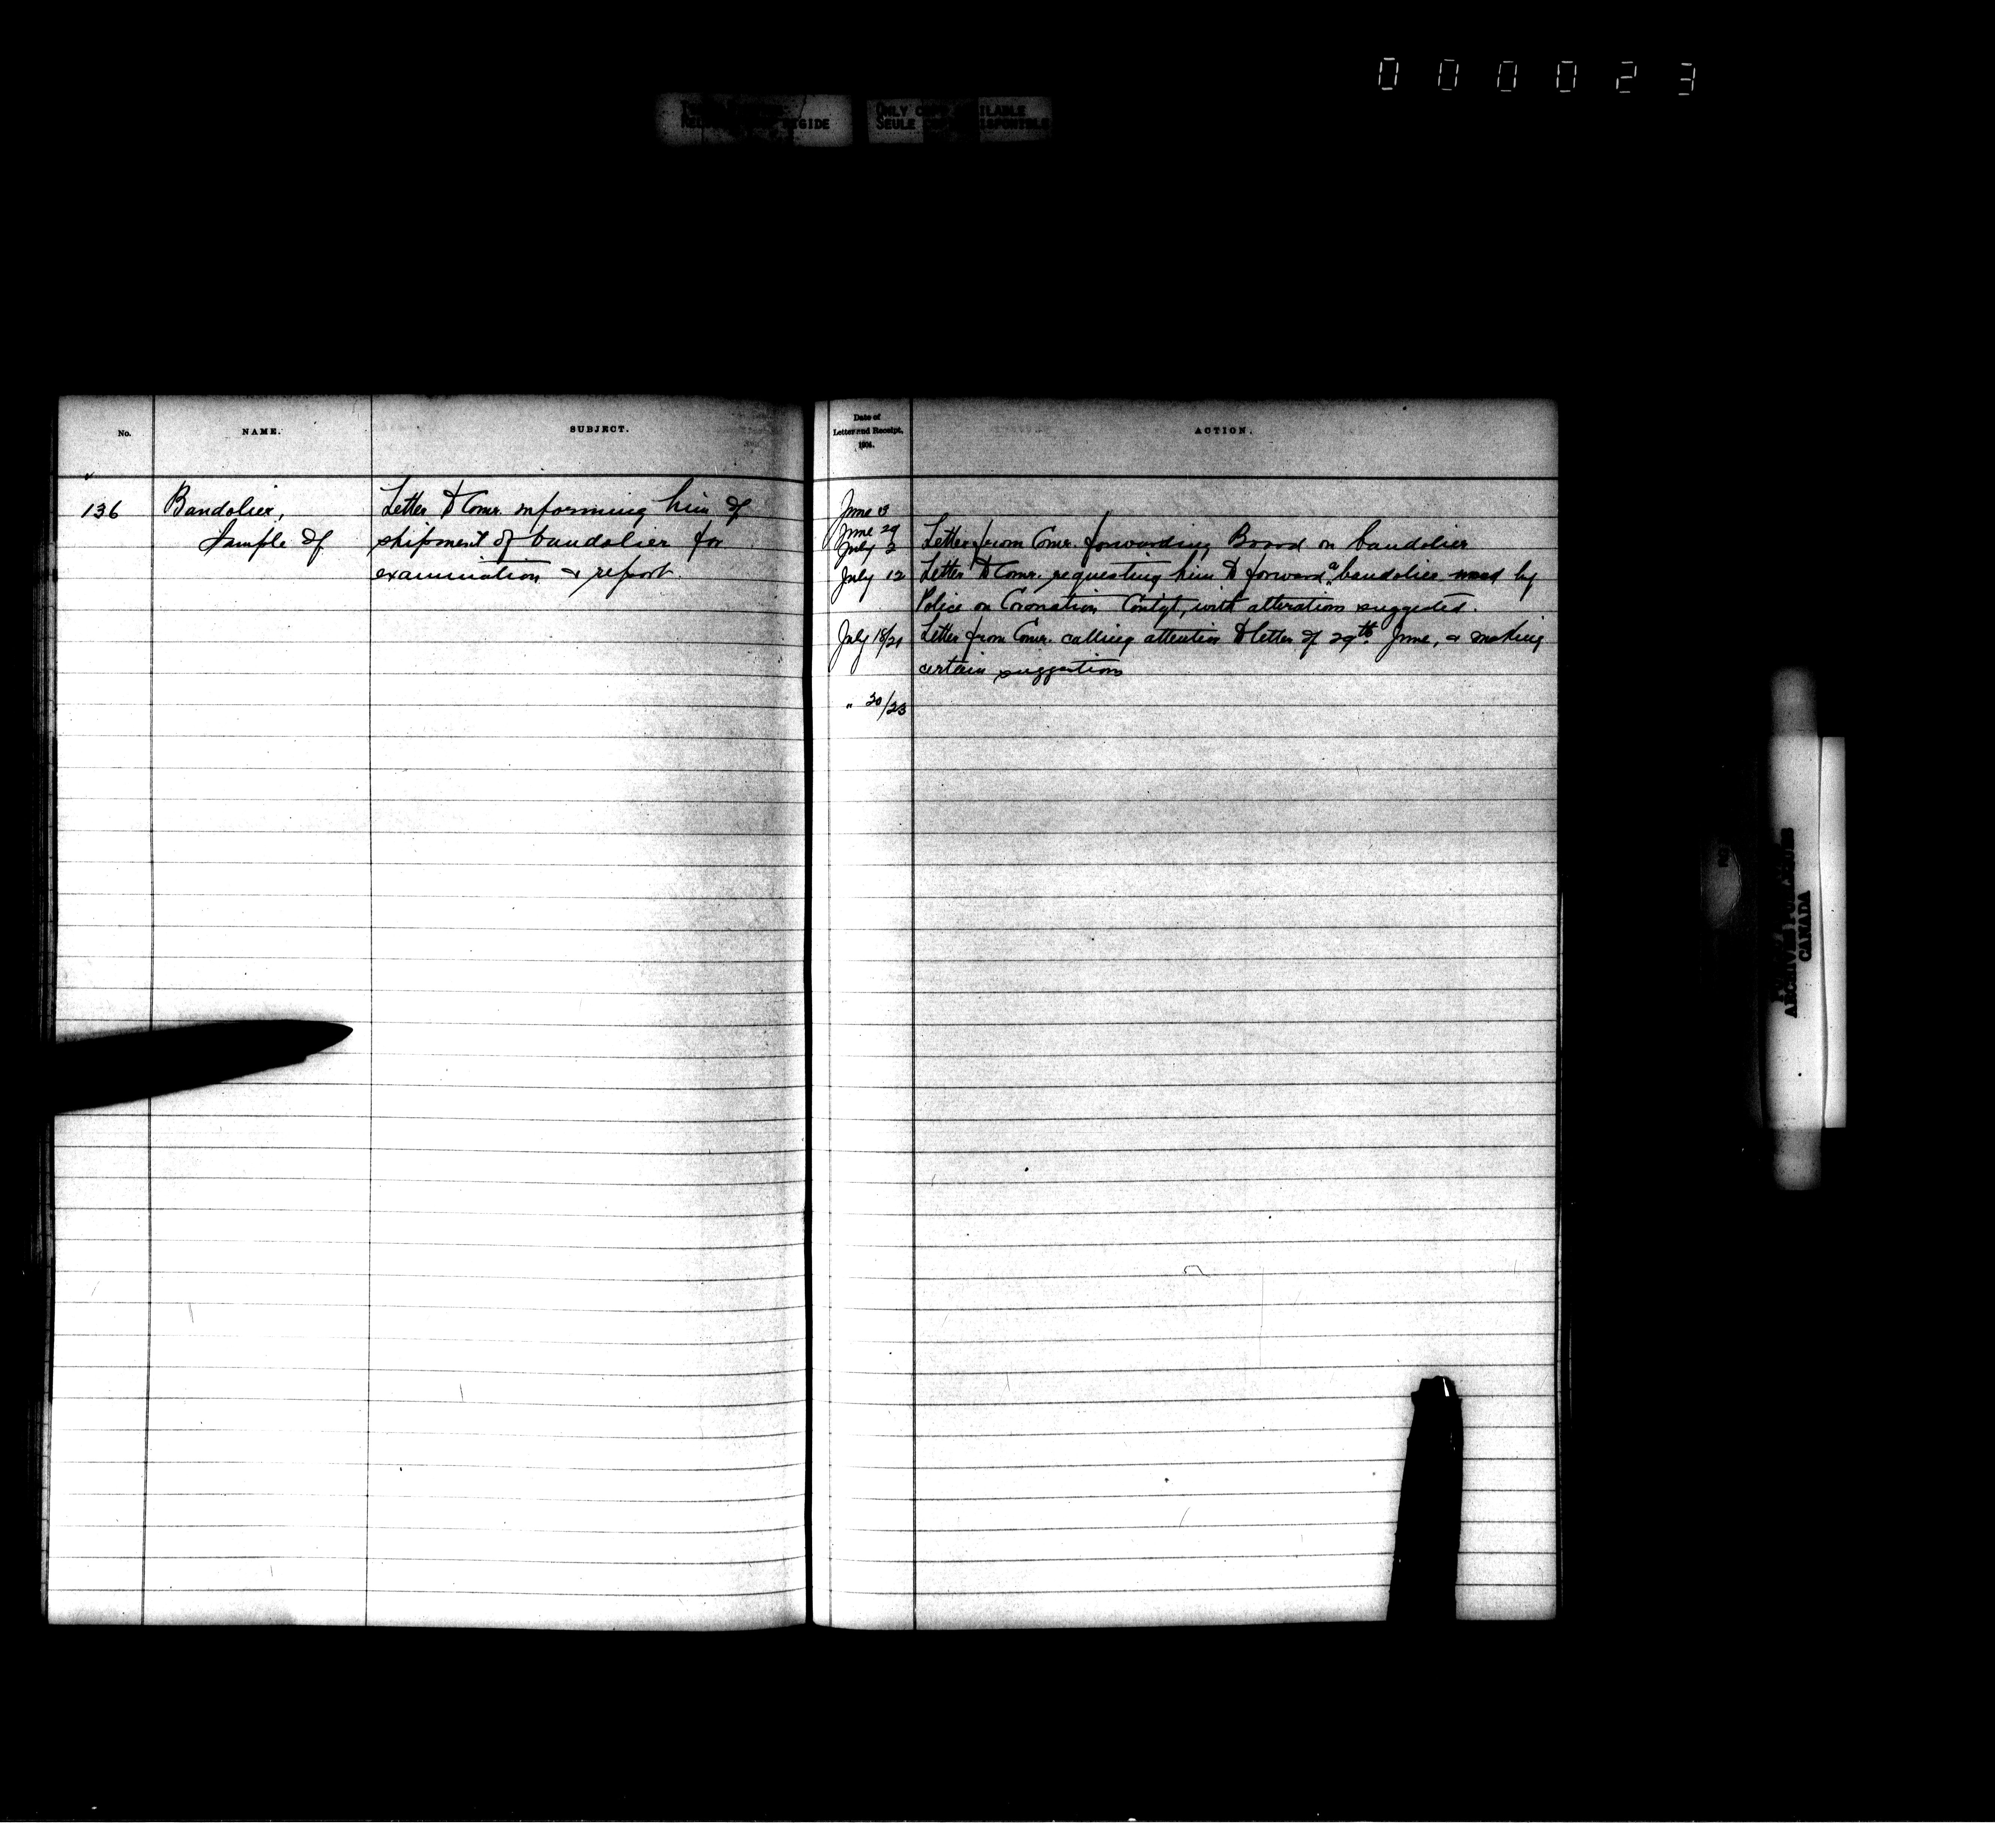 000023
ONLY COPY AVAILABLE
SEULE COPIE DISPONIBLE
No.
NAME.
SUBJECT.
136
Bandolier,
Sample of
Letter to Comr. informing him of
shipment of bandolier for
examination & report.
Date of
Letter and Receipt,
ACTION.
June 13
June 29
July 2 Letter from Comr. forwarding Board on bandolier
July 12 Letter to Comr. requesting him to forward a bandolier used by
Police on Coronation Contgt, with alterations suggested.
July 18/21 Letter from Comr. calling attention to letter of 29th June, & making
certain suggestions
" 30/23
ARCHIVES
CANADA